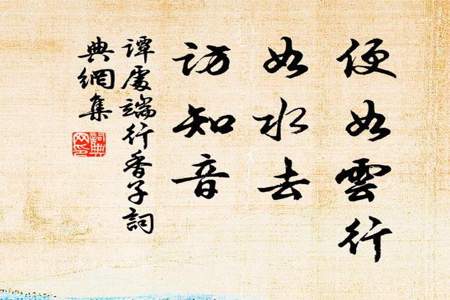 便如雲行
如水去
訪知音
譚處端行香子詞
典網集